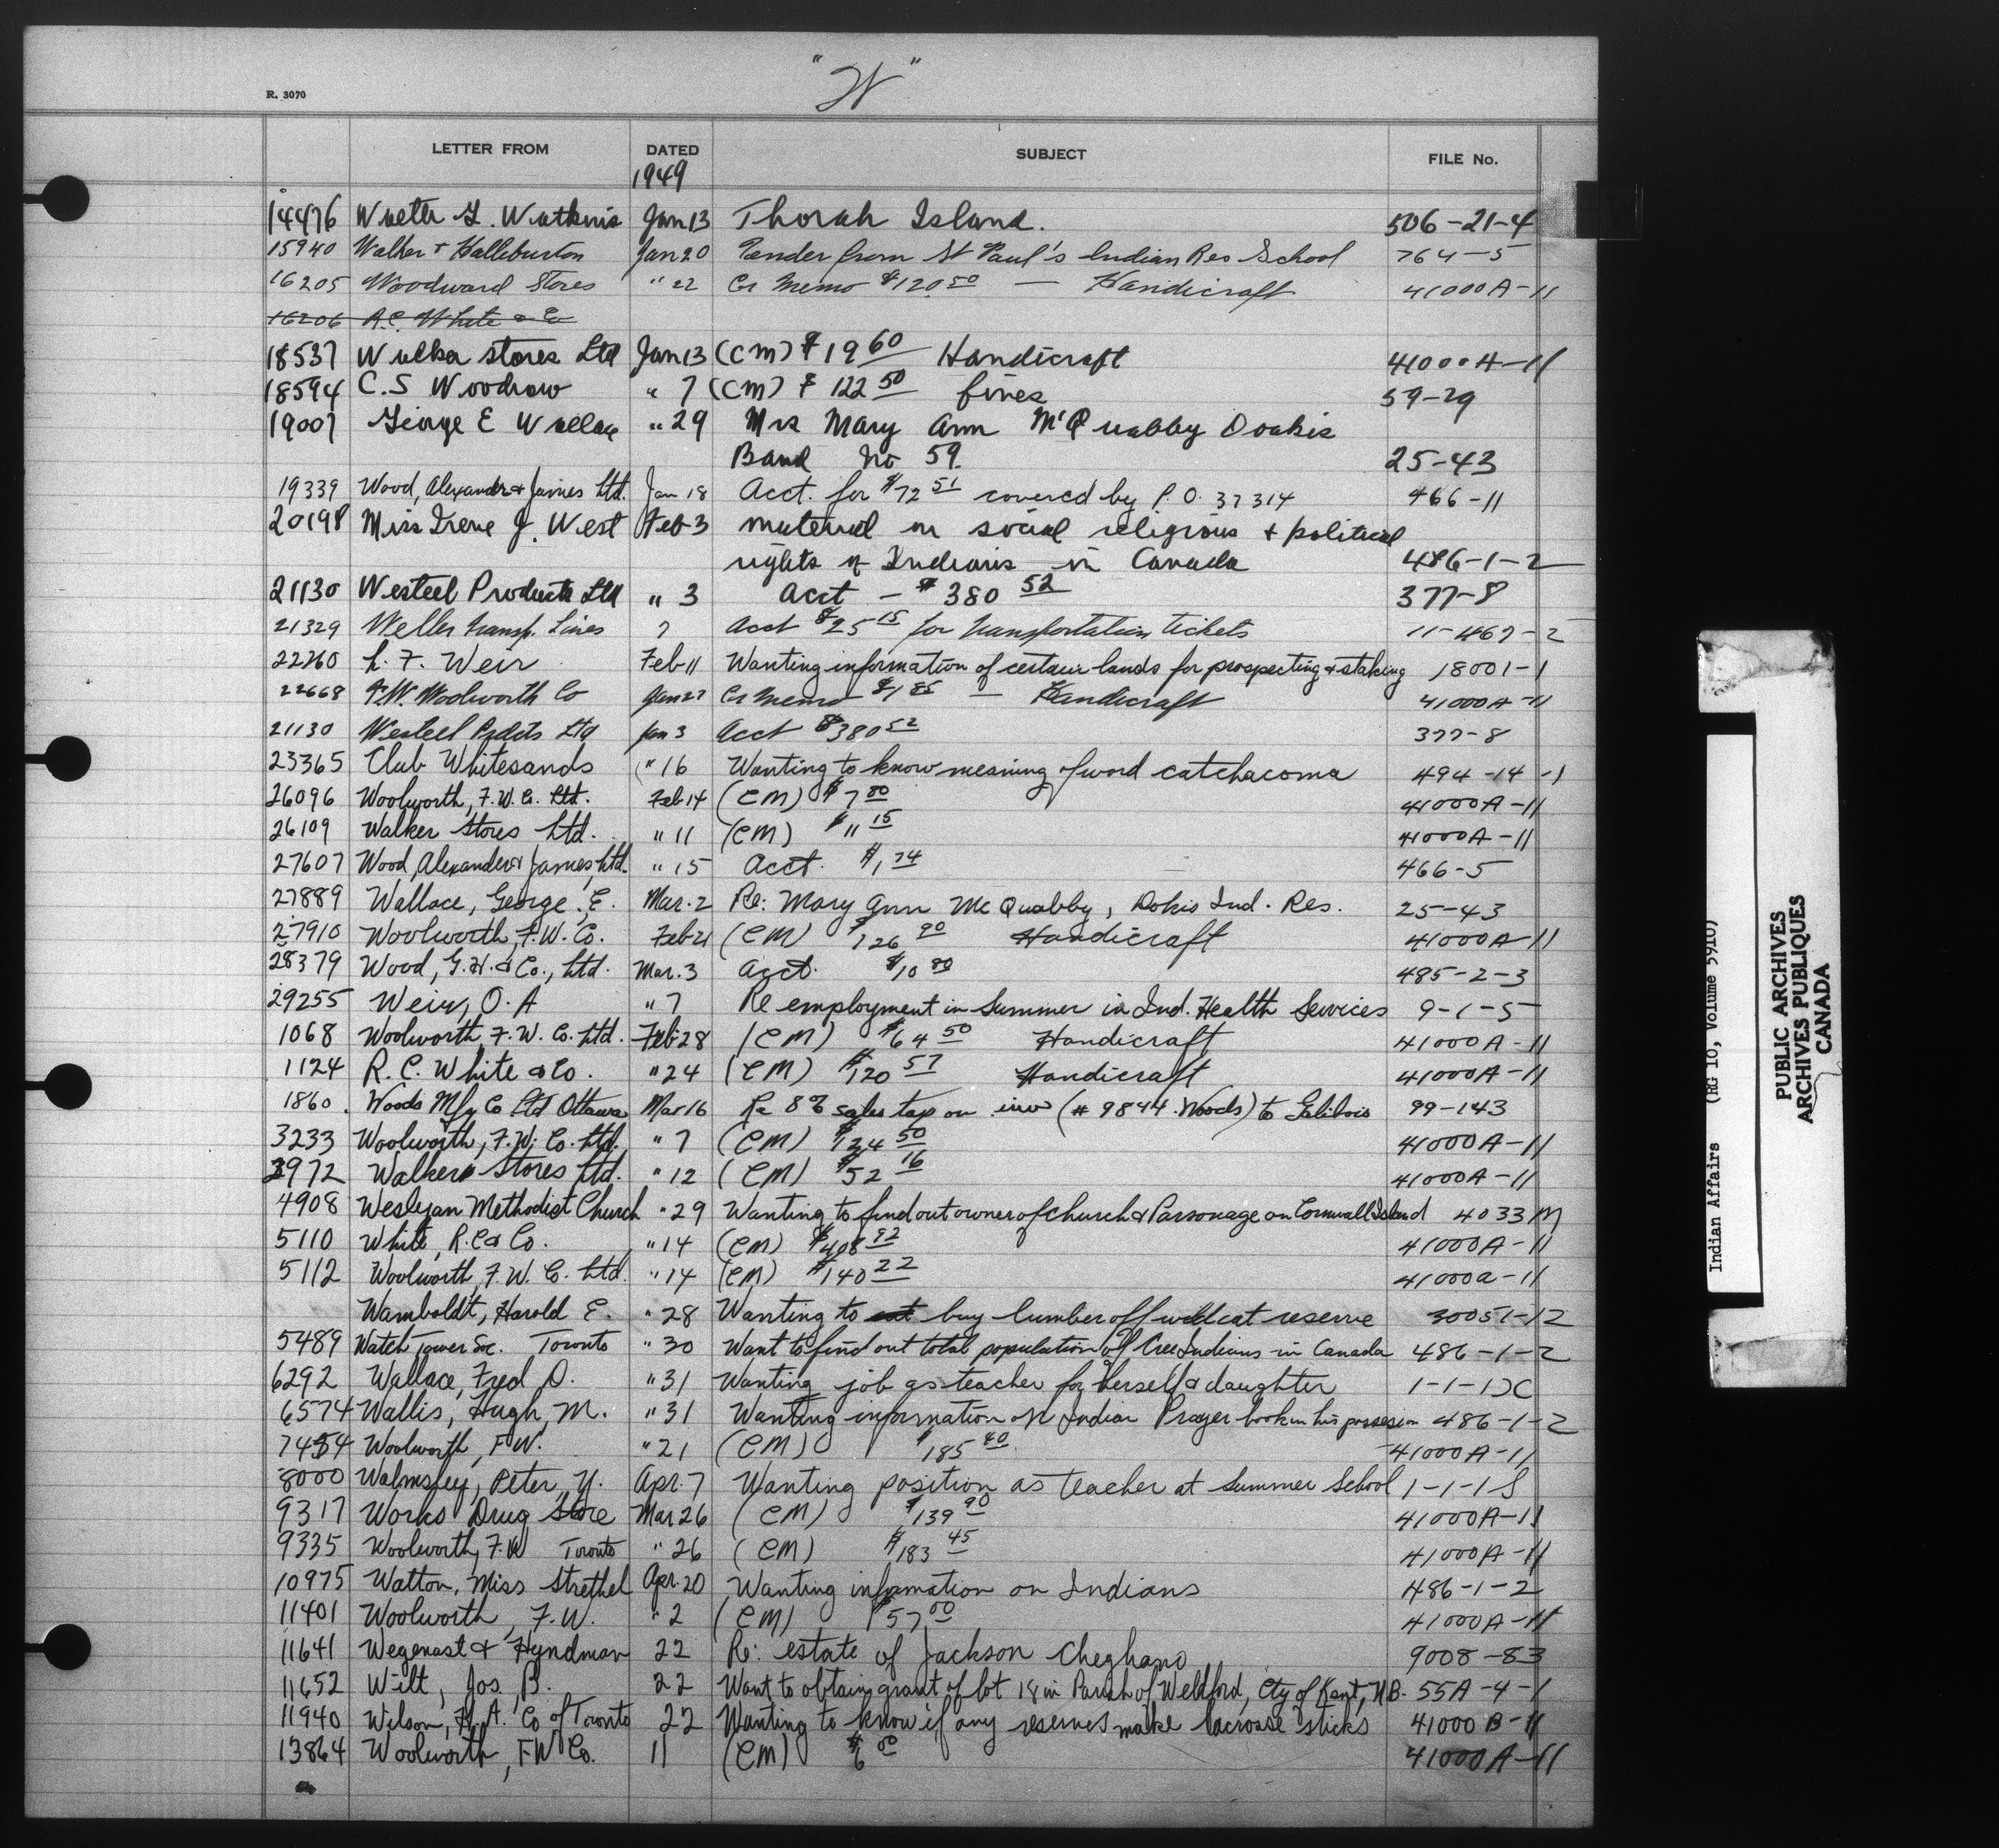 R. 3070
"W"
LETTER FROM DATED SUBJECT FILE No.
1949
14476 Walter G. Watkins Jan 13 Thorah Island. 506-21-4
15940 Walker + Halleburton Jan 20 Tender from St Paul's Indian Res School 764-5
16205 Woodward Stores " 22 Cr Memo $120 50 — Handicraft 41000A-11
16206 White & Co
18537 Walker Stores Ltd Jan 13 (CM) $19 60 Handicraft 41000A-11
18594 C.S Woodrow " 7 (CM) $122 50 fines 59-29
19007 George E Wallace " 29 Mrs Mary Ann McQuabby Dokis
Band No 59. 25-43
19339 Wood, Alexander & James Ltd. Jan 18 Acct. for $72 51 covered by P.O. 37314 466-11
20198 Miss Irene J. West Feb 3 material on social religious + political
rights of Indians in Canada 486-1-2
21130 Westeel Products Ltd " 3 Acct - $380 52 377-8
21329 Weller Transp. Lines 7 Acct $25 15 for Transportation tickets 11-467-2
22260 L. F. Weir Feb 11 Wanting information of certain lands for prospecting & staking 18001-1
22668 F.W. Woolworth Co Jan 27 Cr Memo $1 85 — Handicraft 41000A-11
21130 Westeel Prdcts Ltd Jan 3 Acct $380 52 377-8
23365 Club Whitesands " 16 Wanting to know meaning of word catchacoma 494-14-1
26096 Woolworth, F.W. Co. Ltd. Feb 14 (CM) $7 80 41000A-11
26109 Walker Stores Ltd. " 11 (CM) $11 15 41000A-11
27607 Wood, Alexander & James, Ltd. " 15 Acct. $1 74 466-5
27889 Wallace, George E. Mar. 2 Re: Mary Ann McQuabby, Dokis Ind. Res. 25-43
27910 Woolworth, F.W. Co. Feb 21 (CM) $126 90 Handicraft 41000A-11
28379 Wood, G.H. & Co., Ltd. Mar. 3 Acct. $10 80 485-2-3
29255 Weir, O. A " 7 Re employment in Summer in Ind. Health Services 9-1-5
1068 Woolworth, F.W. Co. Ltd. Feb 28 (CM) $64 50 Handicraft 41000A-11
1124 R. C. White & Co. " 24 (CM) $120 57 Handicraft 41000A-11
1860. Woods Mfg Co Ltd Ottawa Mar 16 Re 8% sales tax on inv (# 9844 Woods) to 99-143
3233 Woolworth, F.W. Co. Ltd. " 7 (CM) $124 50 41000A-11
3972 Walkers Stores Ltd. " 12 (CM) $52 16 41000A-11
4908 Wesleyan Methodist Church " 29 Wanting to find out owner of church & Parsonage on Cornwall Island 4033M
5110 White, R.C & Co. " 14 (CM) $408 92 41000A-11
5112 Woolworth, F.W. Co. Ltd. " 14 (CM) $140 22 41000a-11
Wamboldt, Harold E. " 28 Wanting to cut buy lumber off wildcat reserve 30051-12
5489 Watch Tower Soc. Toronto " 30 Want to find out total population of Cree Indians in Canada 486-1-2
6292 Wallace, Fred D. " 31 Wanting job as teacher for herself & daughter 1-1-1
6574 Wallis, Hugh, M. " 31 Wanting information on Indian Prayer book in his possession 486-1-2
7454 Woolworth, F.W. " 21 (CM) $185 40 41000A-11
8000 Walmsley, Peter Y. Apr. 7 Wanting position as teacher at Summer School 1-1-1 S
9317 Works Drug Store Mar 26 (CM) $139 90 41000A-11
9335 Woolworth, F.W Toronto " 26 (CM) $183 45 41000A-11
10975 Watton, Miss Strethel Apr. 20 Wanting information on Indians 486-1-2
11401 Woolworth, F.W. " 2 (CM) $57 00 41000A-11
11641 Wegenast & Hyndman 22 Re: estate of Jackson Cheghano 9008-83
11652 Wilt, Jos. B. 22 Want to obtain grant of lot 18 in Parish of Weldford, Cty of Kent, N.B. 55A-4-1
11940 Wilson, H. A. Co of Toronto 22 Wanting to know if any reserves make lacrosse sticks 41000 B-11
13864 Woolworth, FW Co. 11 (CM) $6 00 41000A-11
Indian Affairs (RG 10, Volume 5910)
PUBLIC ARCHIVES
ARCHIVES PUBLIQUES
CANADA